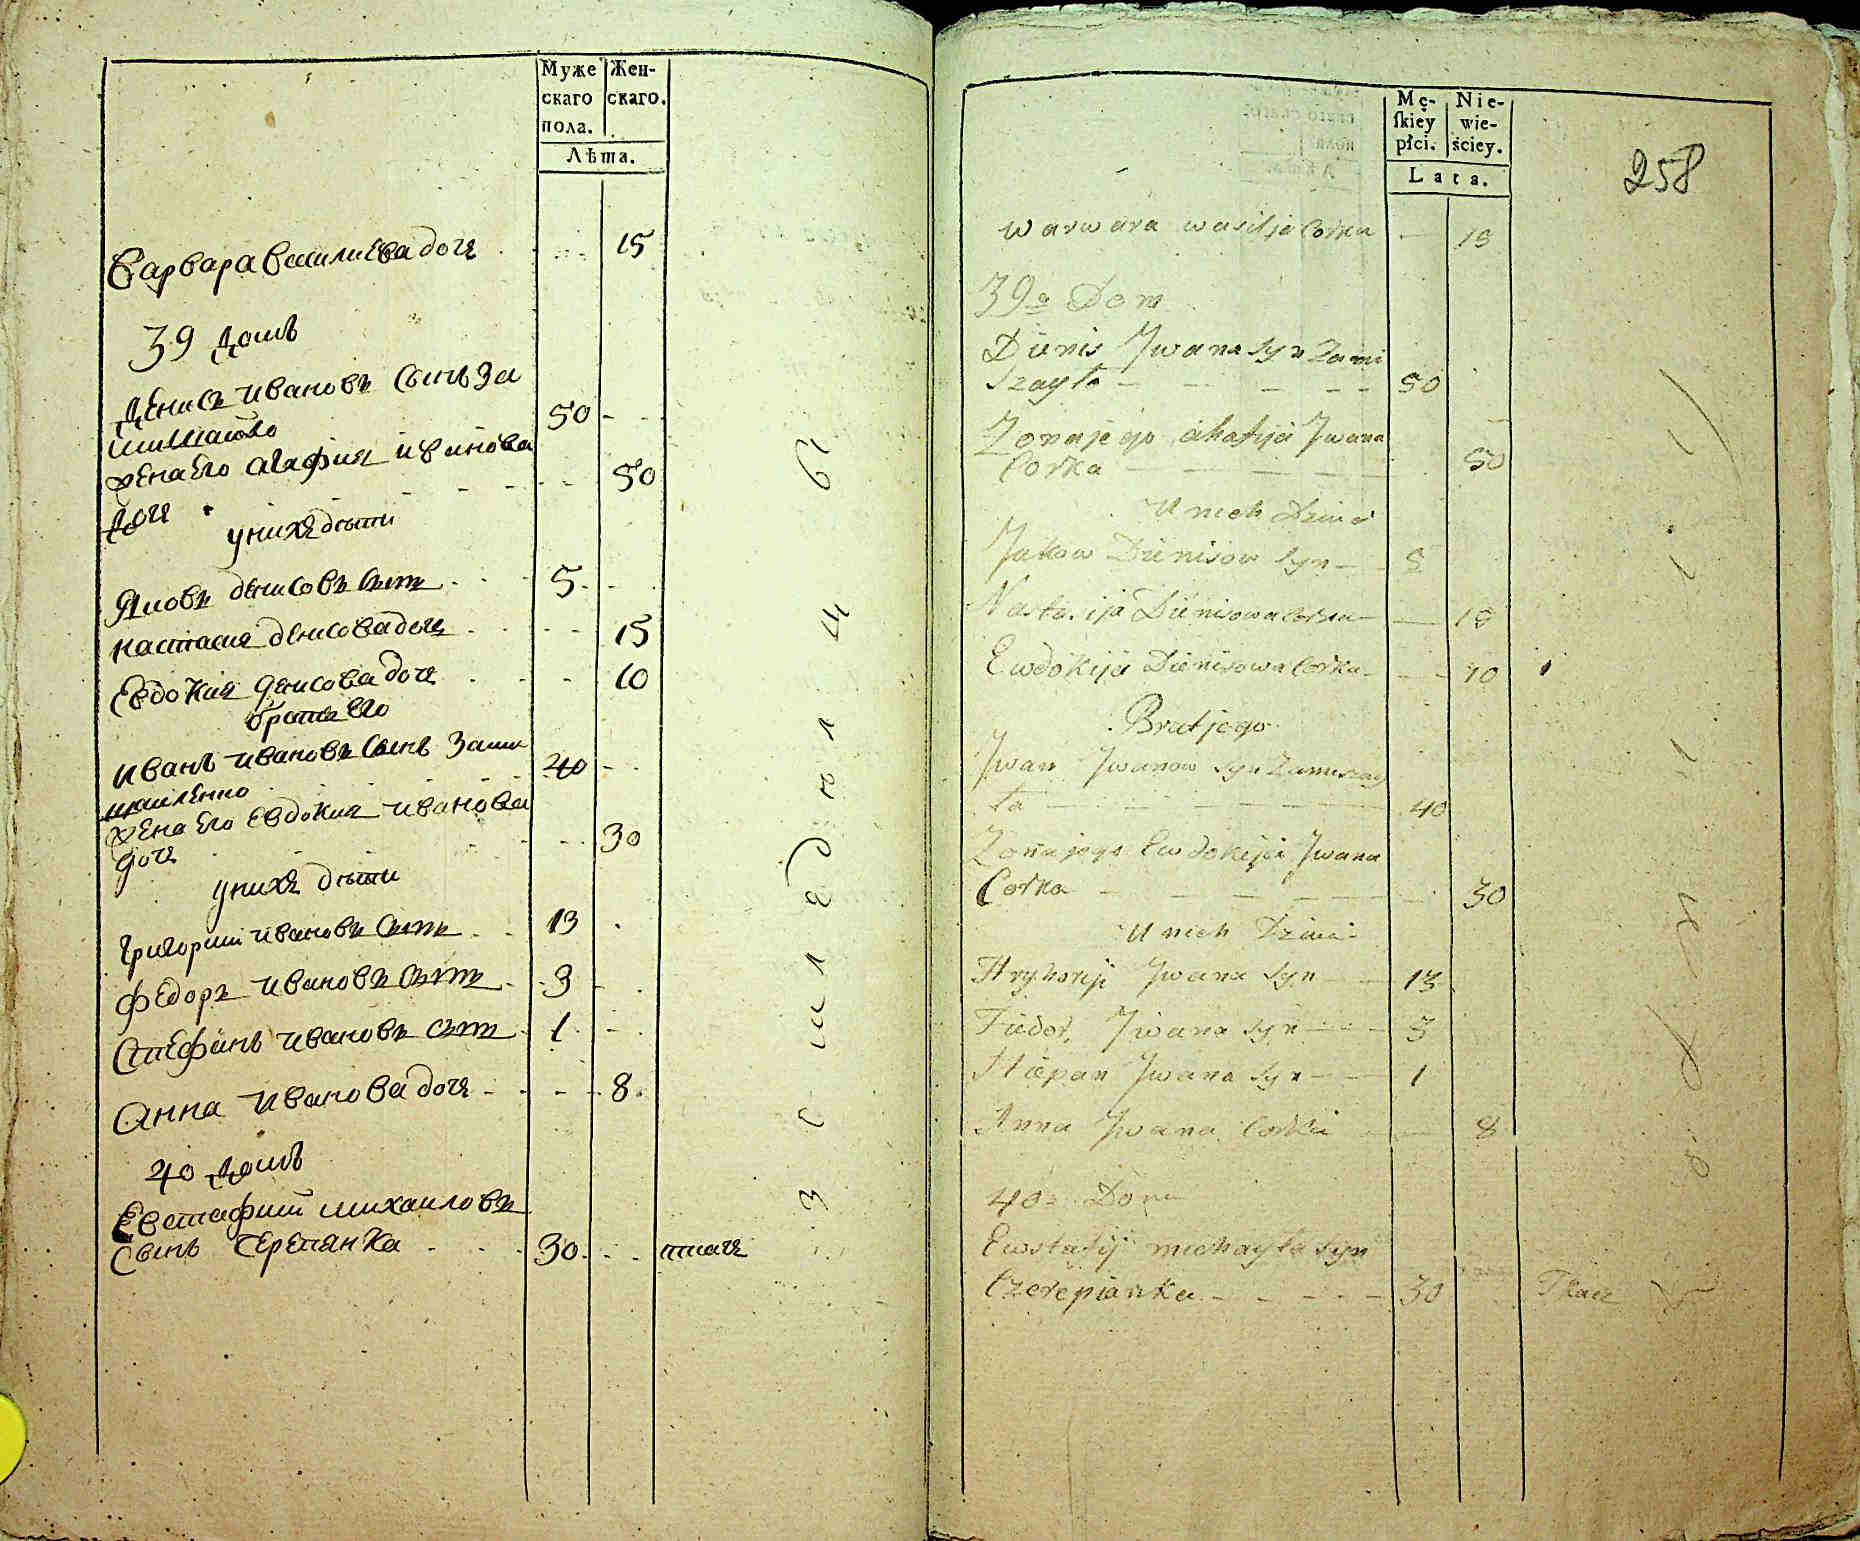 Муже Жен-
скаго скаго.
пола.
Лѣта.
Варвара василиева дочь 15
39 домъ
Денисъ ивановъ сынъ За
мишайло 50
жена его агафия иванова
дочь 50
у нихъ дѣти
Яковъ денисовъ сынъ 5
настасия денисова дочь 15
Евдокия денисова дочь 10
братъ его
иванъ ивановъ сынъ Зами
40
жена его Евдокия иванова
дочь 30
у нихъ дѣти
григорий ивановъ сынъ 13
федоръ ивановъ сынъ 3
Стефанъ ивановъ сынъ 1
Анна иванова дочь 8
40 домъ
Евстафий михаиловъ
сынъ Черепянка 30 ткачь
Mę- Nie-
ſkiey wie-
płci. ściey.
Lata.
258
warwara wasilja Corka 15
39o Dom
Dienis Jwana Syn Zami
szayło 50
Zona jego ahatija Jwana
Corka 50
U nich Dzieci
Jakow Dienisow Syn 5
Nastasija Dienisowa Corka 15
Ewdokija Dienisowa Corka 10
Brat jego
Jwan Jwanow Syn Zamiszay
ło 40
Zona jego Ewdokija Jwana
Corka 30
U nich Dzieci
Hryhorij Jwana Syn 13
Fiedor Jwana Syn 3
Stiepan Jwana Syn 1
Anna Jwana Corka 8
40o Dom
Ewstafij michayła Syn
Czerepianka 30 Tkacz